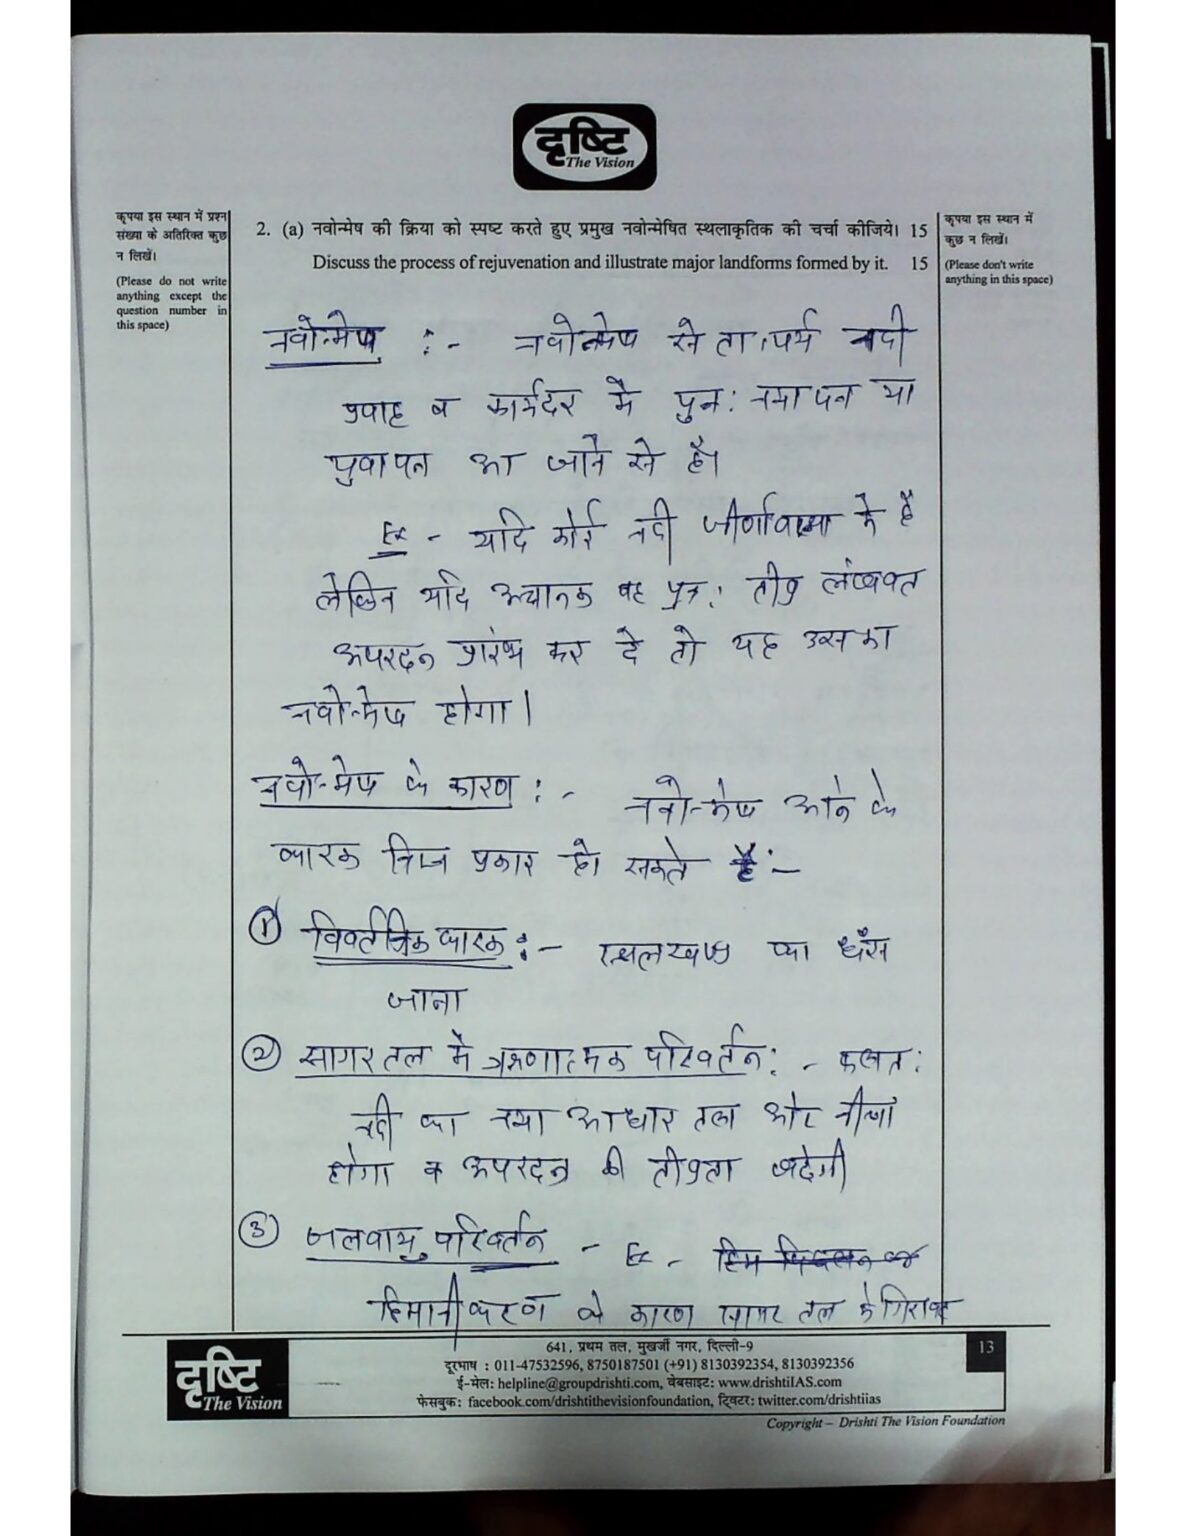 दृष्टि
The Vision
कृपया इस स्थान में प्रश्न
संख्या के अतिरिक्त कुछ
न लिखें।
(Please do not write
anything except the
question number in
this space)
2. (a) नवोन्मेष की क्रिया को स्पष्ट करते हुए प्रमुख नवोन्मेषित स्थलाकृतिक की चर्चा कीजिये। 15
Discuss the process of rejuvenation and illustrate major landforms formed by it. 15
कृपया इस स्थान में
कुछ न लिखें।
(Please don't write
anything in this space)
नवोन्मेष :- नवोन्मेष से तात्पर्य नदी
प्रवाह व कार्यदर में पुन: नयापन या
युवापन आ जाने से है।
Ex - यदि कोई नदी जीर्णावस्था में है
लेकिन यदि अचानक वह पुन: तीव्र लंबवत
अपरदन प्रारंभ कर दे तो यह उसका
नवोन्मेष होगा।
नवोन्मेष के कारण :- नवोन्मेष आने के
कारक निम्न प्रकार हो सकते है:-
① विवर्तनिक कारक :- स्थलखण्ड का धँस
जाना
② सागर तल में ऋणात्मक परिवर्तन :- फलत:
नदी का नया आधार तल और नीचा
होगा व अपरदन की तीव्रता बढ़ेगी
③ जलवायु परिवर्तन - Ex -
हिमानीकरण के कारण सागर तल में गिरावट
दृष्टि
The Vision
641, प्रथम तल, मुखर्जी नगर, दिल्ली-9
दूरभाष : 011-47532596, 8750187501 (+91) 8130392354, 8130392356
ई-मेल: helpline@groupdrishti.com, वेबसाइट: www.drishtiIAS.com
फेसबुक: facebook.com/drishtithevisionfoundation, ट्विटर: twitter.com/drishtiias
13
Copyright – Drishti The Vision Foundation